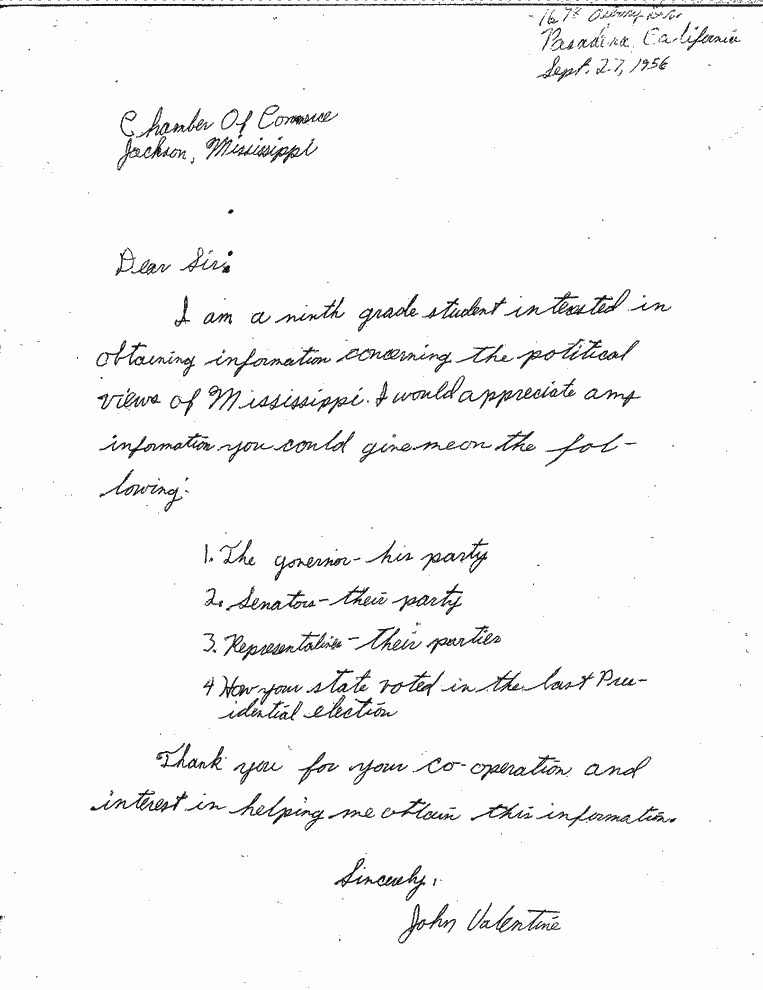 1678 Asbury Drive
Pasadena, California
Sept. 27, 1956
Chamber Of Commerce
Jackson, Mississippi
Dear Sir:
I am a ninth grade student intersted in
obtaining information concerning the political
views of Mississippi. I would appreciate any
information you could give me on the fol-
lowing:
1. The governor - his party
2. Senators - their party
3. Representatives - their parties
4 How your state voted in the last Pres-
idential election
Thank you for your co-operation and
interest in helping me obtain this information.
Sincerely,
John Valentine